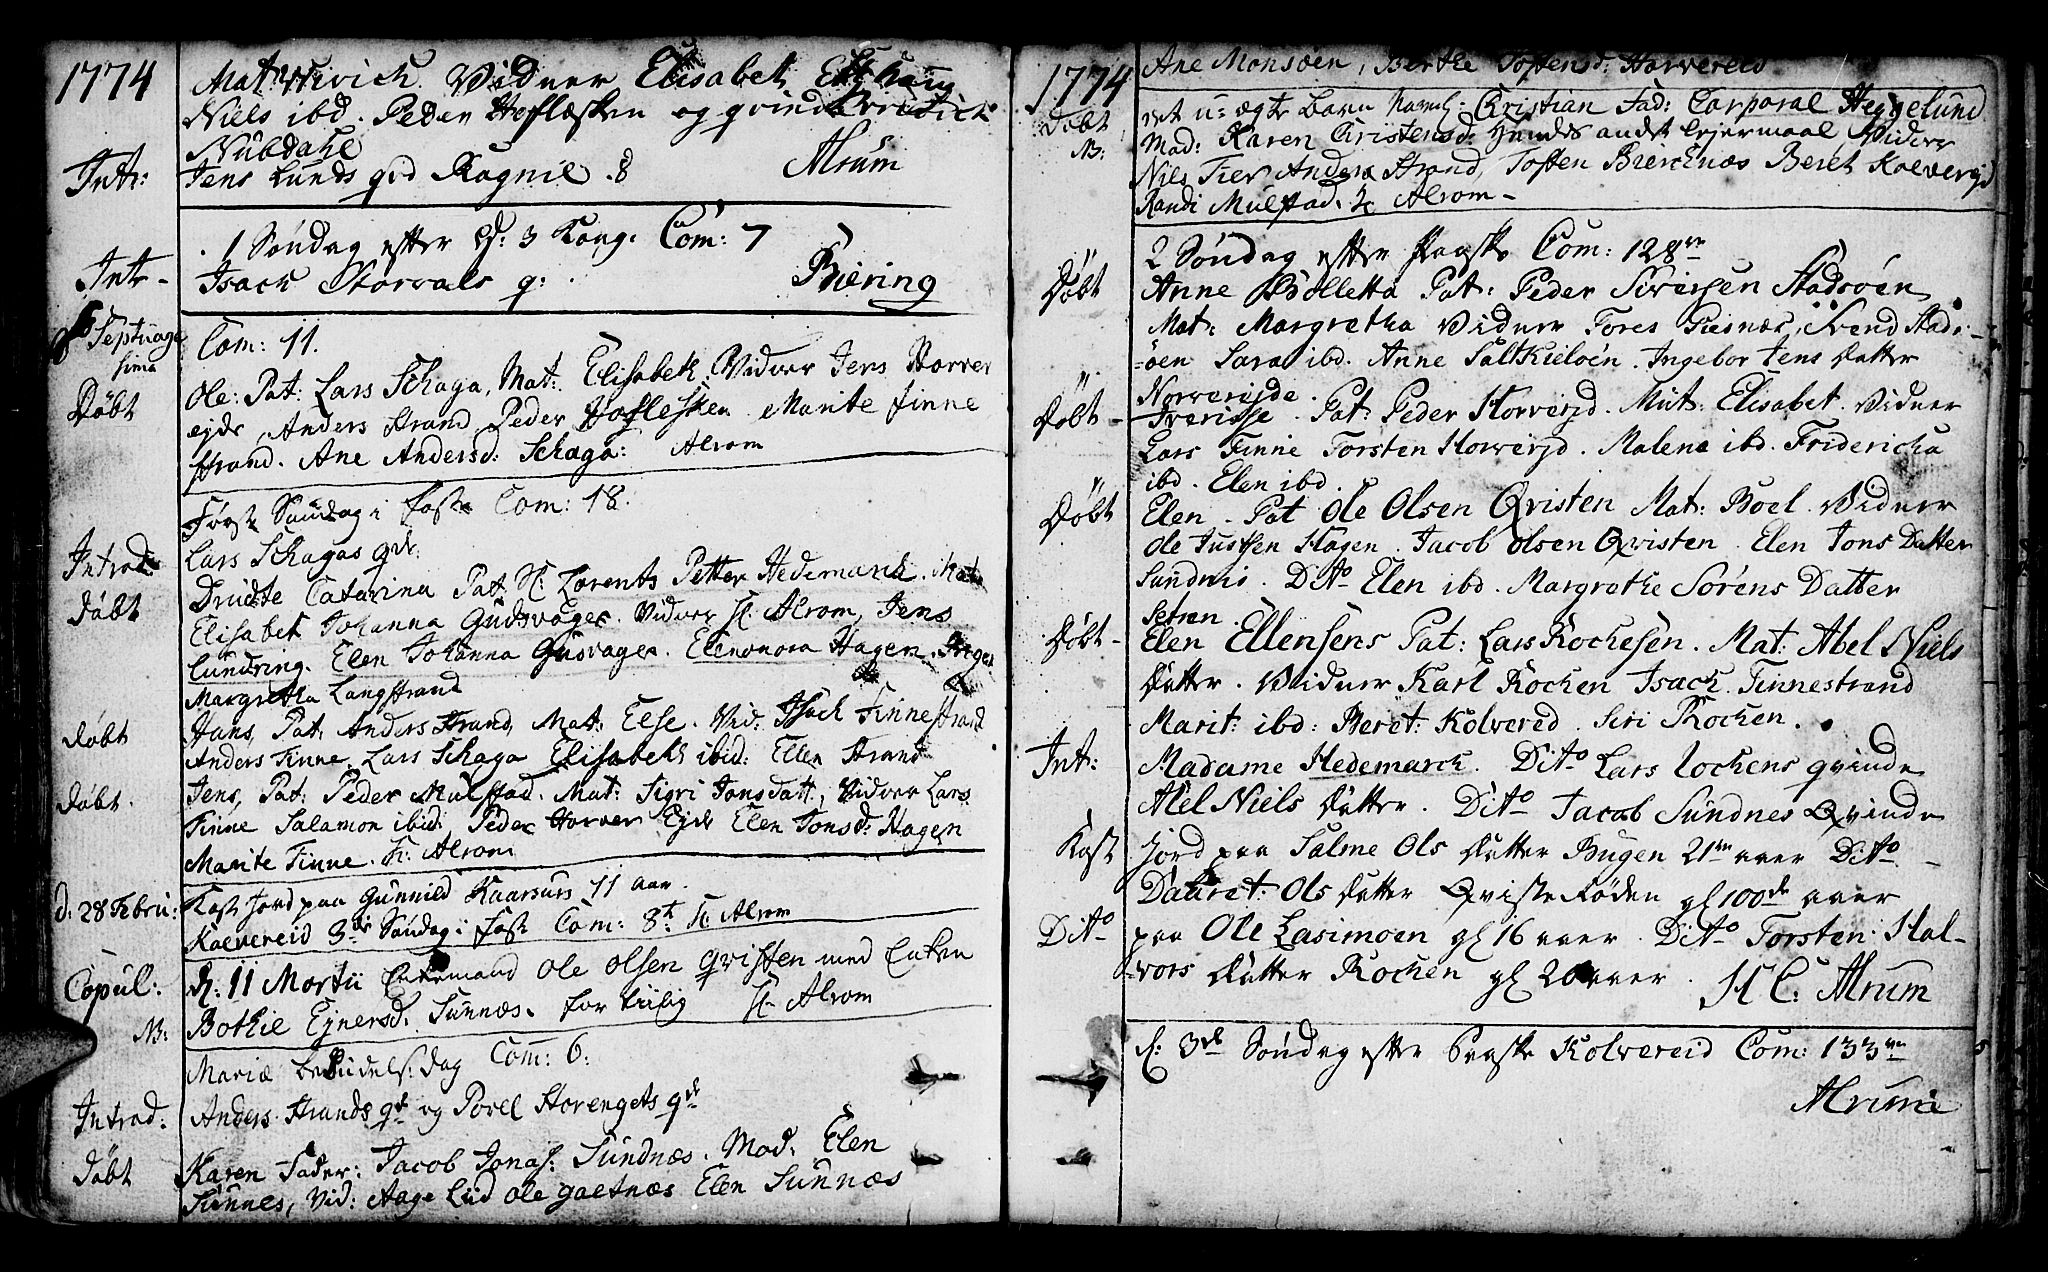 1774
Mat: Vidner Elisabet
Niels ibd. Peder Hoflesken og qvinde
Nübdahl
Intr: Jens Lunds qvd Ragnil. 8 Alrum
1 Søndag efter H: 3 Kong: Com: 7
Intr- Isach Storvals q: Biering
Septuagesima Com: 11.
Døbt Ole: Pat: Lars Schaga, Mat: Elisabeth. Vidner Jens Horver
ejde, Anders Strand, Peder Hoflesken. Marite Finne
strand. Ane Andersd: Schaga: Alrom
Først Søndag i Faste Com: 18.
Introd: Lars Schagas qv:
Døbt Drüdte Catarina Pat: H: Lorents Petter Hedemark. Mat:
Elisabet Johanna Gudsvager. Vidner H: Alrom, Jens
Lundring. Elen Johanna Gusvager. Elenonora Hagen. Inger
Margretha Langstrand
Døbt Hans, Pat: Anders Strand, Mat: Else. Vid: Isach Finnestrand
Anders Finne, Lars Schaga Elisabeth ibid: Elen Strand
Døbt. Jens, Pat: Peder Mulstad. Mat: Sigri Jonsdatt, Vidner Lars
Finne Salamon ibid: Peder Horver Ejde Elen Jonsd: Hagen
Marite Finne. H: Alrom
d: 28 Febru: Kast Jord paa Gunnild Kaarsurs 11 aar.
Kolvereid 3die Søndag i Fast Com: 8t. H: Alrom
Copul: d: 11 Martii Enkemand Ole Olsen Qvisten med Enken
NB: Bothie Ejnersd. Sünnæs. H: Alrom
Mariæ bebudels: dag Com: 6:
Introd: Anders Strands qv: og Povel Storengets qv:
Døbt Karen Fader: Jacob Jonas: Sündnæs. Mod: Elen
Sünnes, Vid: Aage Liid Ole gaetnæs Elen Sünnæs
1774 Ane Monsøen, Berthe Toftensd: Horvereid
Døbt et u-ægte Barn Navnl: Christian Fad: Corporal Heggelund
NB: Mod: Karen Christensd: Hendes andet Lejermaal Vidner
Niels Fier Anders Strand, Toften Bierchnæs Beret Kolvereid
Randi Mulstad. H: Alrom-
2 Søndag efter Paaske Com: 128
Døbt Anne Bolletta Pat: Peder Siversen Stadsøen
Mat: Margretha Vidner Fores Piesnæs, Svend Stads-
=øen Sara ibd. Anne Saltkieløen. Ingebor Jens datter
Norverejde.
Døbt- Iverisse. Pat: Peder Horverjd. Mat: Elisabet. Vidner
Lars Finne Torsten Horverjd. Malena ibd. Fridericha
ibd. Elen ibd.
Døbt Elen. Pat Ole Olsen Qvisten Mat: Boel. Vidner
Ole Justsen Hagen. Jacob Olsen Qvisten. Elen Jons Datter
Sundnis. Dito Elen ibd. Margrethe Sørens Datter
Setran.
Døbt- Elen Ellensens Pat: Lars Rochesen. Mat: Abel Niels
datter. Vidner Karl Rochen Isach Finnestrand
Marit: ibd: Beret: Kolvereid. Siri Rochen.
Int: Madame Hedemarck. Dito Lars Rochens qvinde
Abel Niels datter. Dito Jacob Sündnes Qvinde
Kast Jord paa Salme Ols datter Bugen 21 aaer Dito
Dauret: Ols datter Qvisterøden gl 100de aaer
Dito paa Ole Lasimoen gl 16 aaer. Dito Torsten: Hal-
=vors datter Rochen gl 20 aaer. H C: Alrum
d: 3de Søndag efter Paaske Kolvereid Com: 133
Alrum